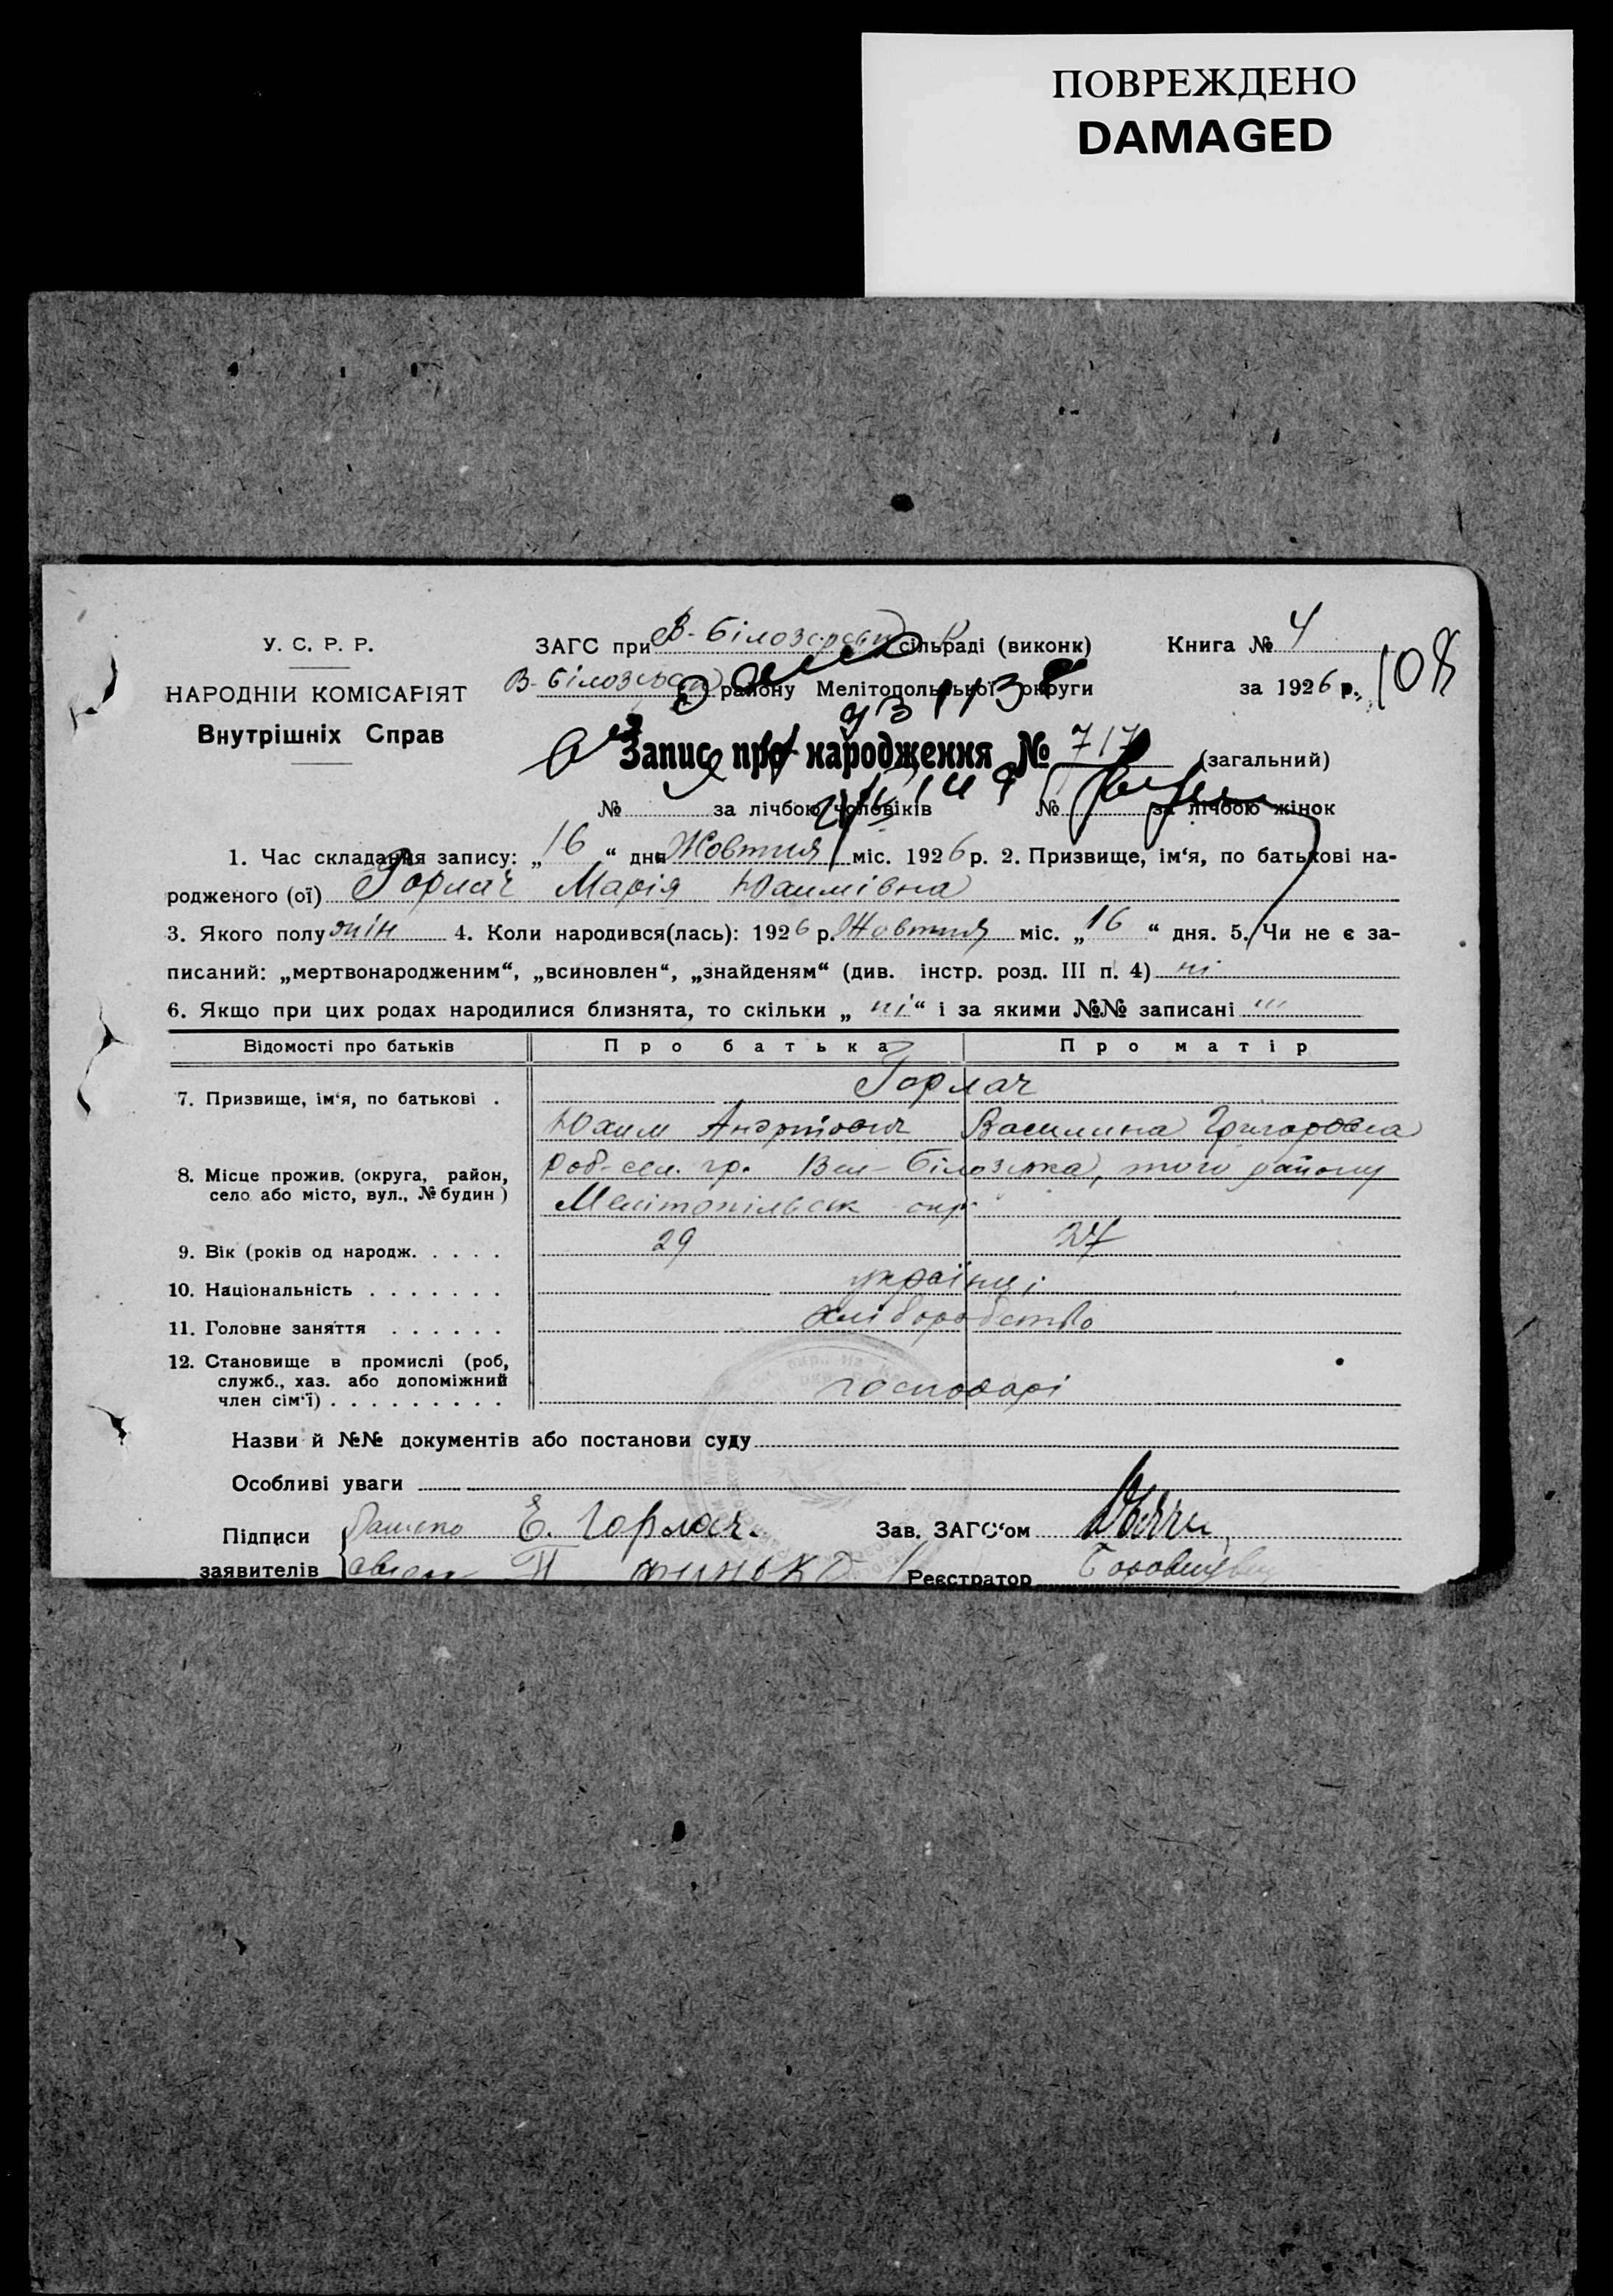 ПОВРЕЖДЕНО
DAMAGED
У. С. Р. Р.
НАРОДНІЙ КОМІСАРІЯТ
Внутрішніх Справ
ЗАГС при В-Білозерськ сільраді (виконк)
В-Білозерськ району Мелітопольської округи
Книга № 4
за 1926 р. 108
Запис про народження № 717 (загальний)
№ за лічбою чоловіків № за лічбою жінок
1. Час складання запису: „16“ дня Жовтня міс. 1926 р. 2. Призвище, ім‘я, по батькові на-
родженого (ої) Горлач Марія Юхимівна
3. Якого полу жін 4. Коли народився(лась): 1926 р. Жовтня міс. „16“ дня. 5. Чи не є за-
писаний: „мертвонародженим“, „всиновлен“, „знайденям“ (див. інстр. розд. III п. 4) ні
6. Якщо при цих родах народилися близнята, то скільки „ні“ і за якими №№ записані
Відомості про батьків Про батька Про матір
7. Призвище, ім‘я, по батькові . Горлач
Юхим Андрійович Василина Григоровна
8. Місце прожив. (округа, район,
село або місто, вул., № будин)
сел. гр. Вел-Білозірка, того району
Мелітопільськ окр.
9. Вік (років од народж. . . . . 29 27
10. Національність . . . . . . . українці
11. Головне заняття . . . . . . хліборобство
12. Становище в промислі (роб,
служб., хаз. або допоміжний
член сім‘ї) . . . . . . . . . господарі
Назви й №№ документів або постанови суду
Особливі уваги
Підписи Е. Горлач. Зав. ЗАГС‘ом
заявителів П Реєстратор